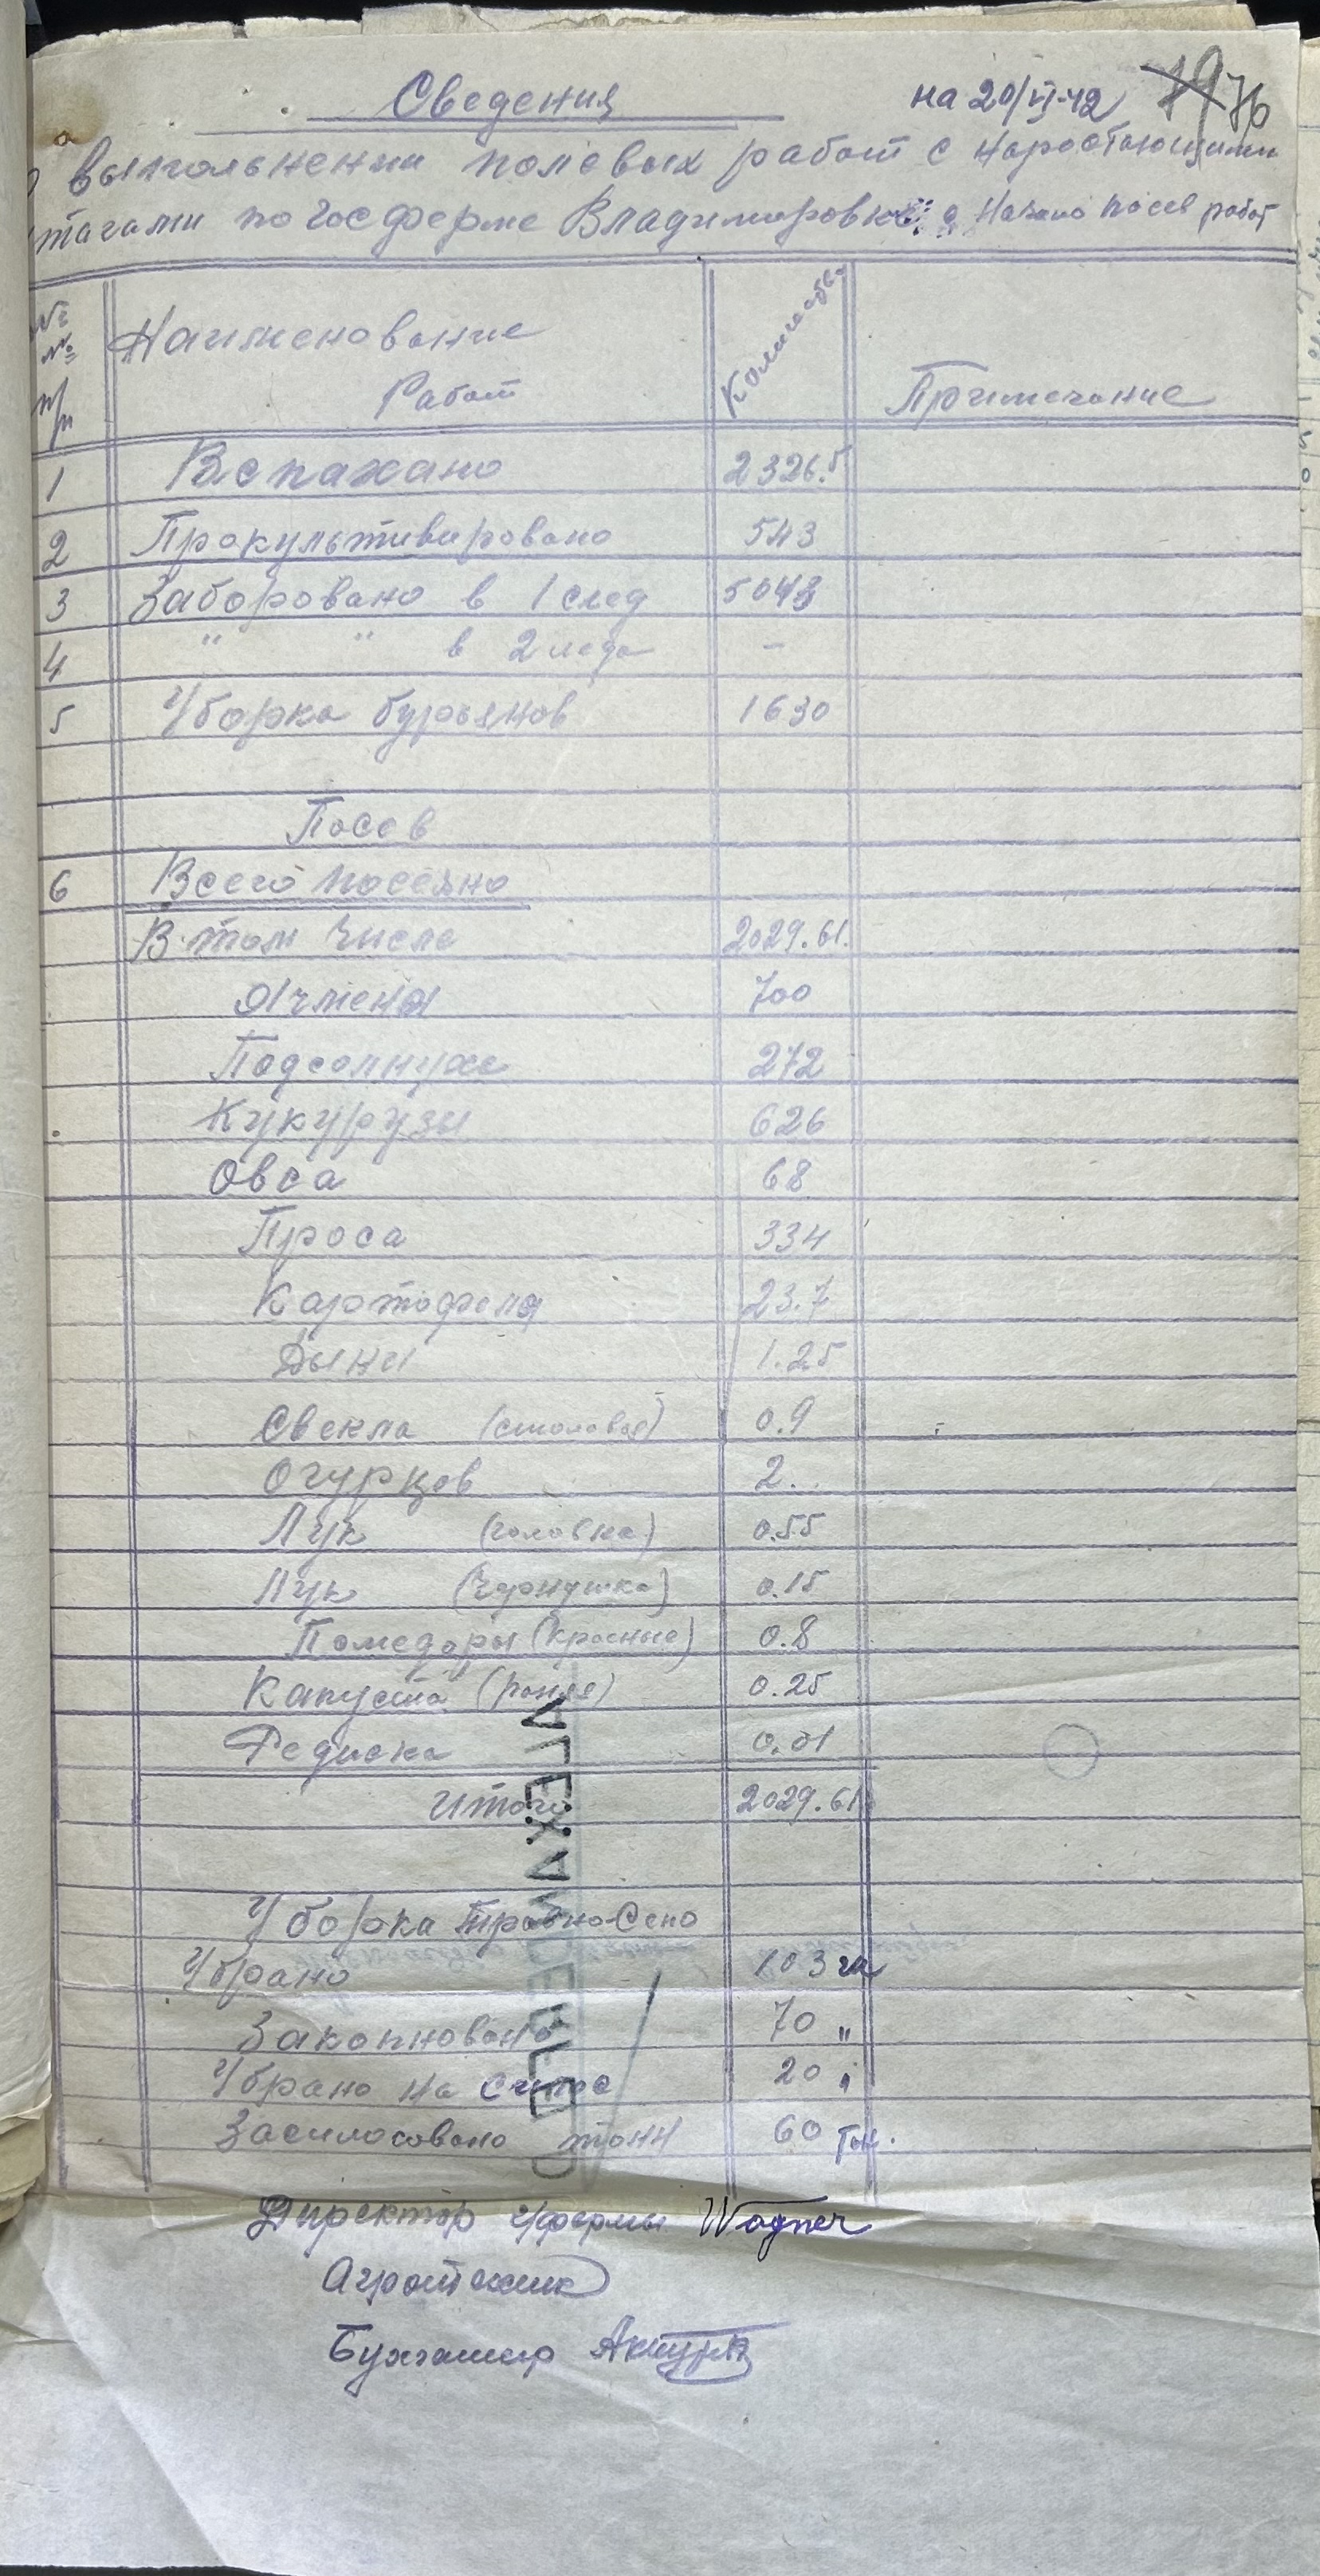 Сведения на 20/VI-42 76
о выпольнении полевых работ с наростающими
итагами по Госферме Владимировке с Начала посев работ
№№ п/п Наименование Работ Количество Примечание
1 Вспахано 2326.5
2 Прокультивировано 543
3 Заборовано в 1 след 5043
4 " " в 2 леда -
5 Уборка бурьянов 1630
Посев
6 Всего посеяно
В том числе 2029.61.
Ячменя 700
Подсолнуха 272
Кукурузы 626
Овса 68
Проса 334
Картофеля 23.7
Дыни 1.25
Свекла (столовая) 0.9
Огурцов 2..
Лук (головка) 0.55
Лук (чернушка) 0.15
Помедоры (красные) 0.8
Капуста (раняя) 0.25
Редиска 0.01
Итого 2029.61
Уборка травно-Сено
Убрано 103 га
Закопновано 70 "
Убрано на Силос 20 "
Засилосовано тонн 60 тон.
ALEXANDERFELD
Директор г/фермы Wagner
Агротехник
Бухгалтер